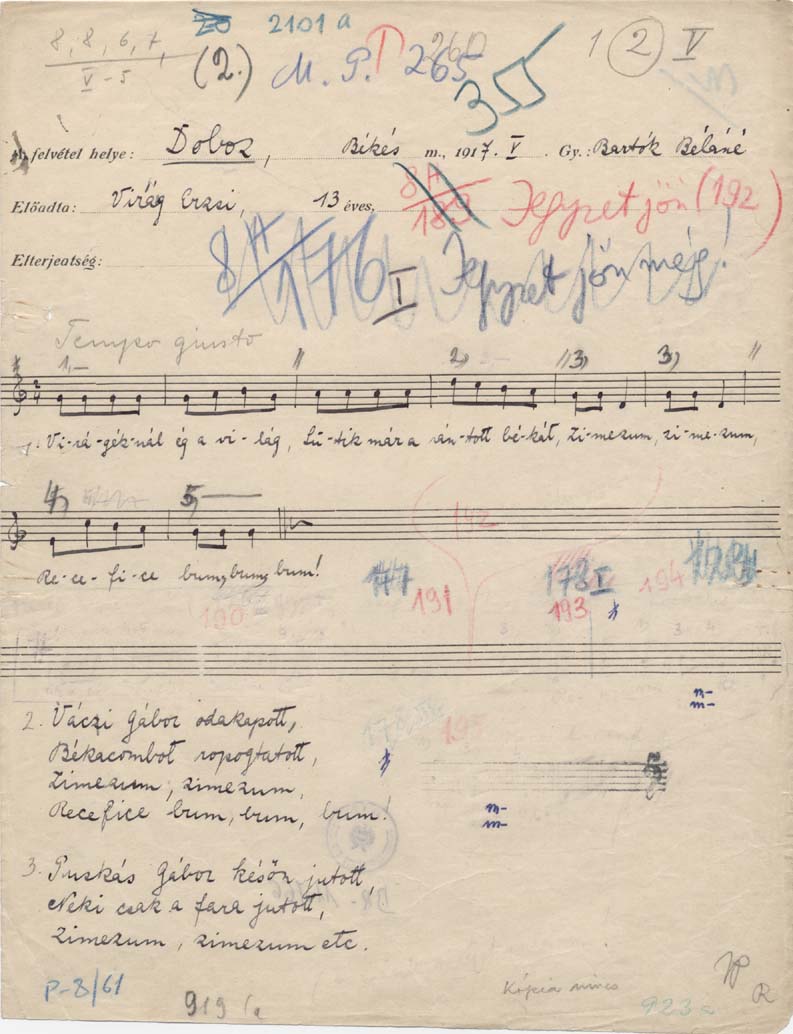 20 2101 a
8, 8, 6, 7,
V - 5
(2.) M. P. I 265 260
355
1 2 V
A felvétel helye: Doboz, Békés m., 1917. V. Gy.: Bartók Béláné
Előadta: Virág Erzsi, 13 éves,
8A/189 Jegyzet jön (192)
Elterjedtség:
8A/176 I Jegyzet jön még!
Tempo giusto
1, 2, 3, 3,
1. Vi-rá-gék-nál ég a vi-lág, Sü-tik már a rán-tott bé-kát, Zi-me-zum, zi-me-zum,
4, 5,
Re-ce-fi-ce bum, bum, bum!
192
177 178 I
191 193 194
190
2. Váczi Gábor odakapott,
Békacombot ropogtatott,
Zimezum, zimezum,
Recefice bum, bum, bum!
178 II 195
3. Puskás Gábor későn jutott,
Neki csak a fara jutott,
Zimezum, zimezum etc.
P-8/61
919/a
Kópia nincs
923 a
R